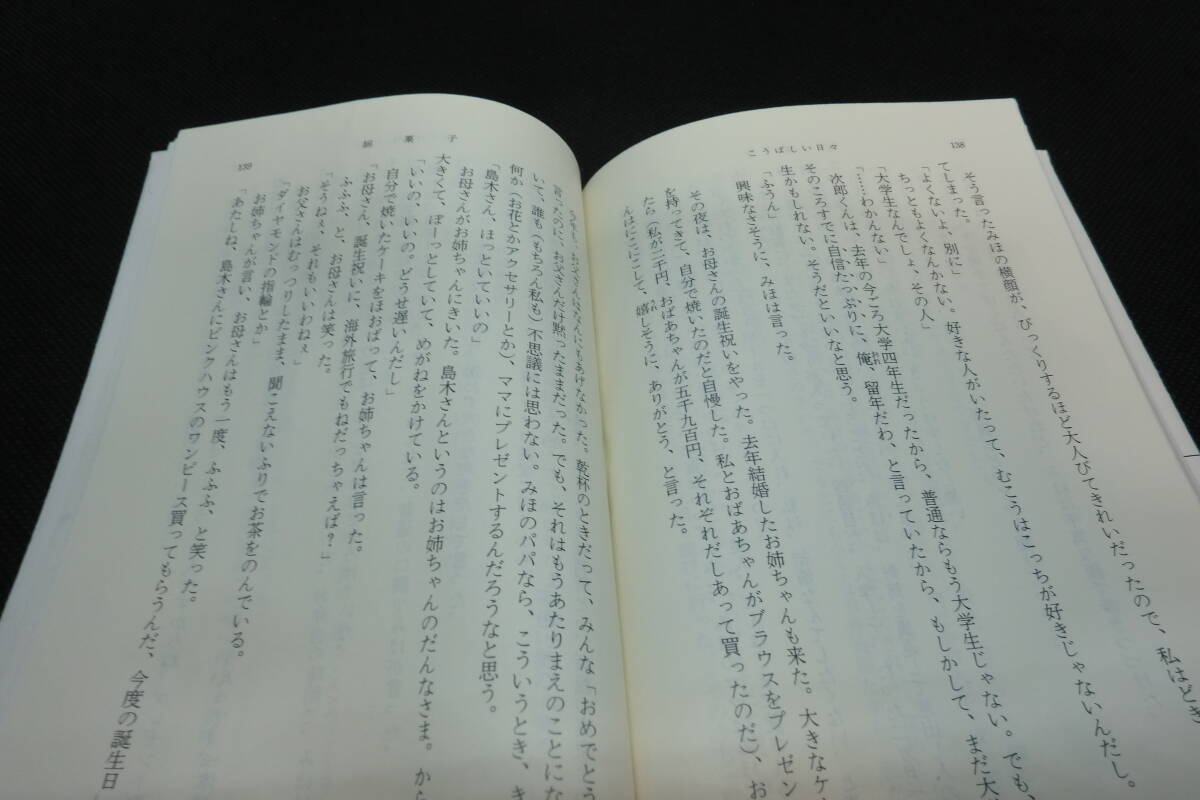 138
こうばしい日々
そう言ったみほの横顔が、びっくりするほど大人びてきれいだったので、私はどき
てしまった。
「よくないよ、別に」
ちっともよくなんかない。好きな人がいたって、むこうはこっちが好きじゃないんだし。
「大学生なんでしょ、その人」
「……わかんない」
次郎くんは、去年の今ごろ大学四年生だったから、普通ならもう大学生じゃない。でも、
そのころすでに自信たっぷりに、俺、留年だわ、と言っていたから、もしかして、まだ大
生かもしれない。そうだといいなと思う。
「ふうん」
興味なさそうに、みほは言った。
その夜は、お母さんの誕生祝いをやった。去年結婚したお姉ちゃんも来た。大きなケ
を持ってきて、自分で焼いたのだと自慢した。私とおばあちゃんがブラウスをプレゼン
たら（私が二千円、おばあちゃんが五千九百円、それぞれだしあって買ったのだ）、お
んはにこにこして、嬉しそうに、ありがとう、と言った。
綿菓子
139
お父さんはなんにもあげなかった。乾杯のときだって、みんな「おめでとう
言ったのに、お父さんだけ黙ったままだった。でも、それはもうあたりまえのことにな
いて、誰も（もちろん私も）不思議には思わない。みほのパパなら、こういうとき、き
何か（お花とかアクセサリーとか）、ママにプレゼントするんだろうなと思う。
「島木さん、ほっといていいの」
お母さんがお姉ちゃんにきいた。島木さんというのはお姉ちゃんのだんなさま。から
大きくて、ぼーっとしていて、めがねをかけている。
「いいの、いいの。どうせ遅いんだし」
自分で焼いたケーキをほおばって、お姉ちゃんは言った。
「お母さん、誕生祝いに、海外旅行でもねだっちゃえば？」
ふふふ、と、お母さんは笑った。
「そうねぇ、それもいいわねぇ」
お父さんはむっつりしたまま、聞こえないふりでお茶をのんでいる。
「ダイヤモンドの指輪とか」
お姉ちゃんが言い、お母さんはもう一度、ふふふ、と笑った。
「あたしね、島木さんにピンクハウスのワンピース買ってもらうんだ、今度の誕生日